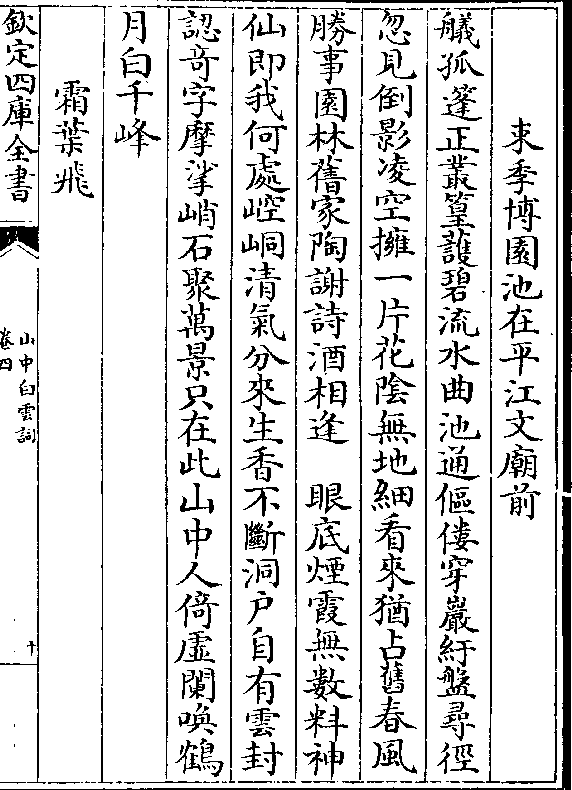 束季博園池在平江文廟前
艤孤篷正叢篁護碧流水曲池通傴僂穿巖紆盤尋徑
忽見倒影凌空擁一片花陰無地細看來猶占舊春風
勝事園林舊家陶謝詩酒相逢 眼底煙霞無數料神
仙即我何處崆峒清氣分來生香不斷洞戶自有雲封
認奇字摩挲峭石聚萬景只在此山中人倚虛闌喚鶴
月白千峰
霜葉飛
欽定四庫全書
山中白雲詞
卷四
十